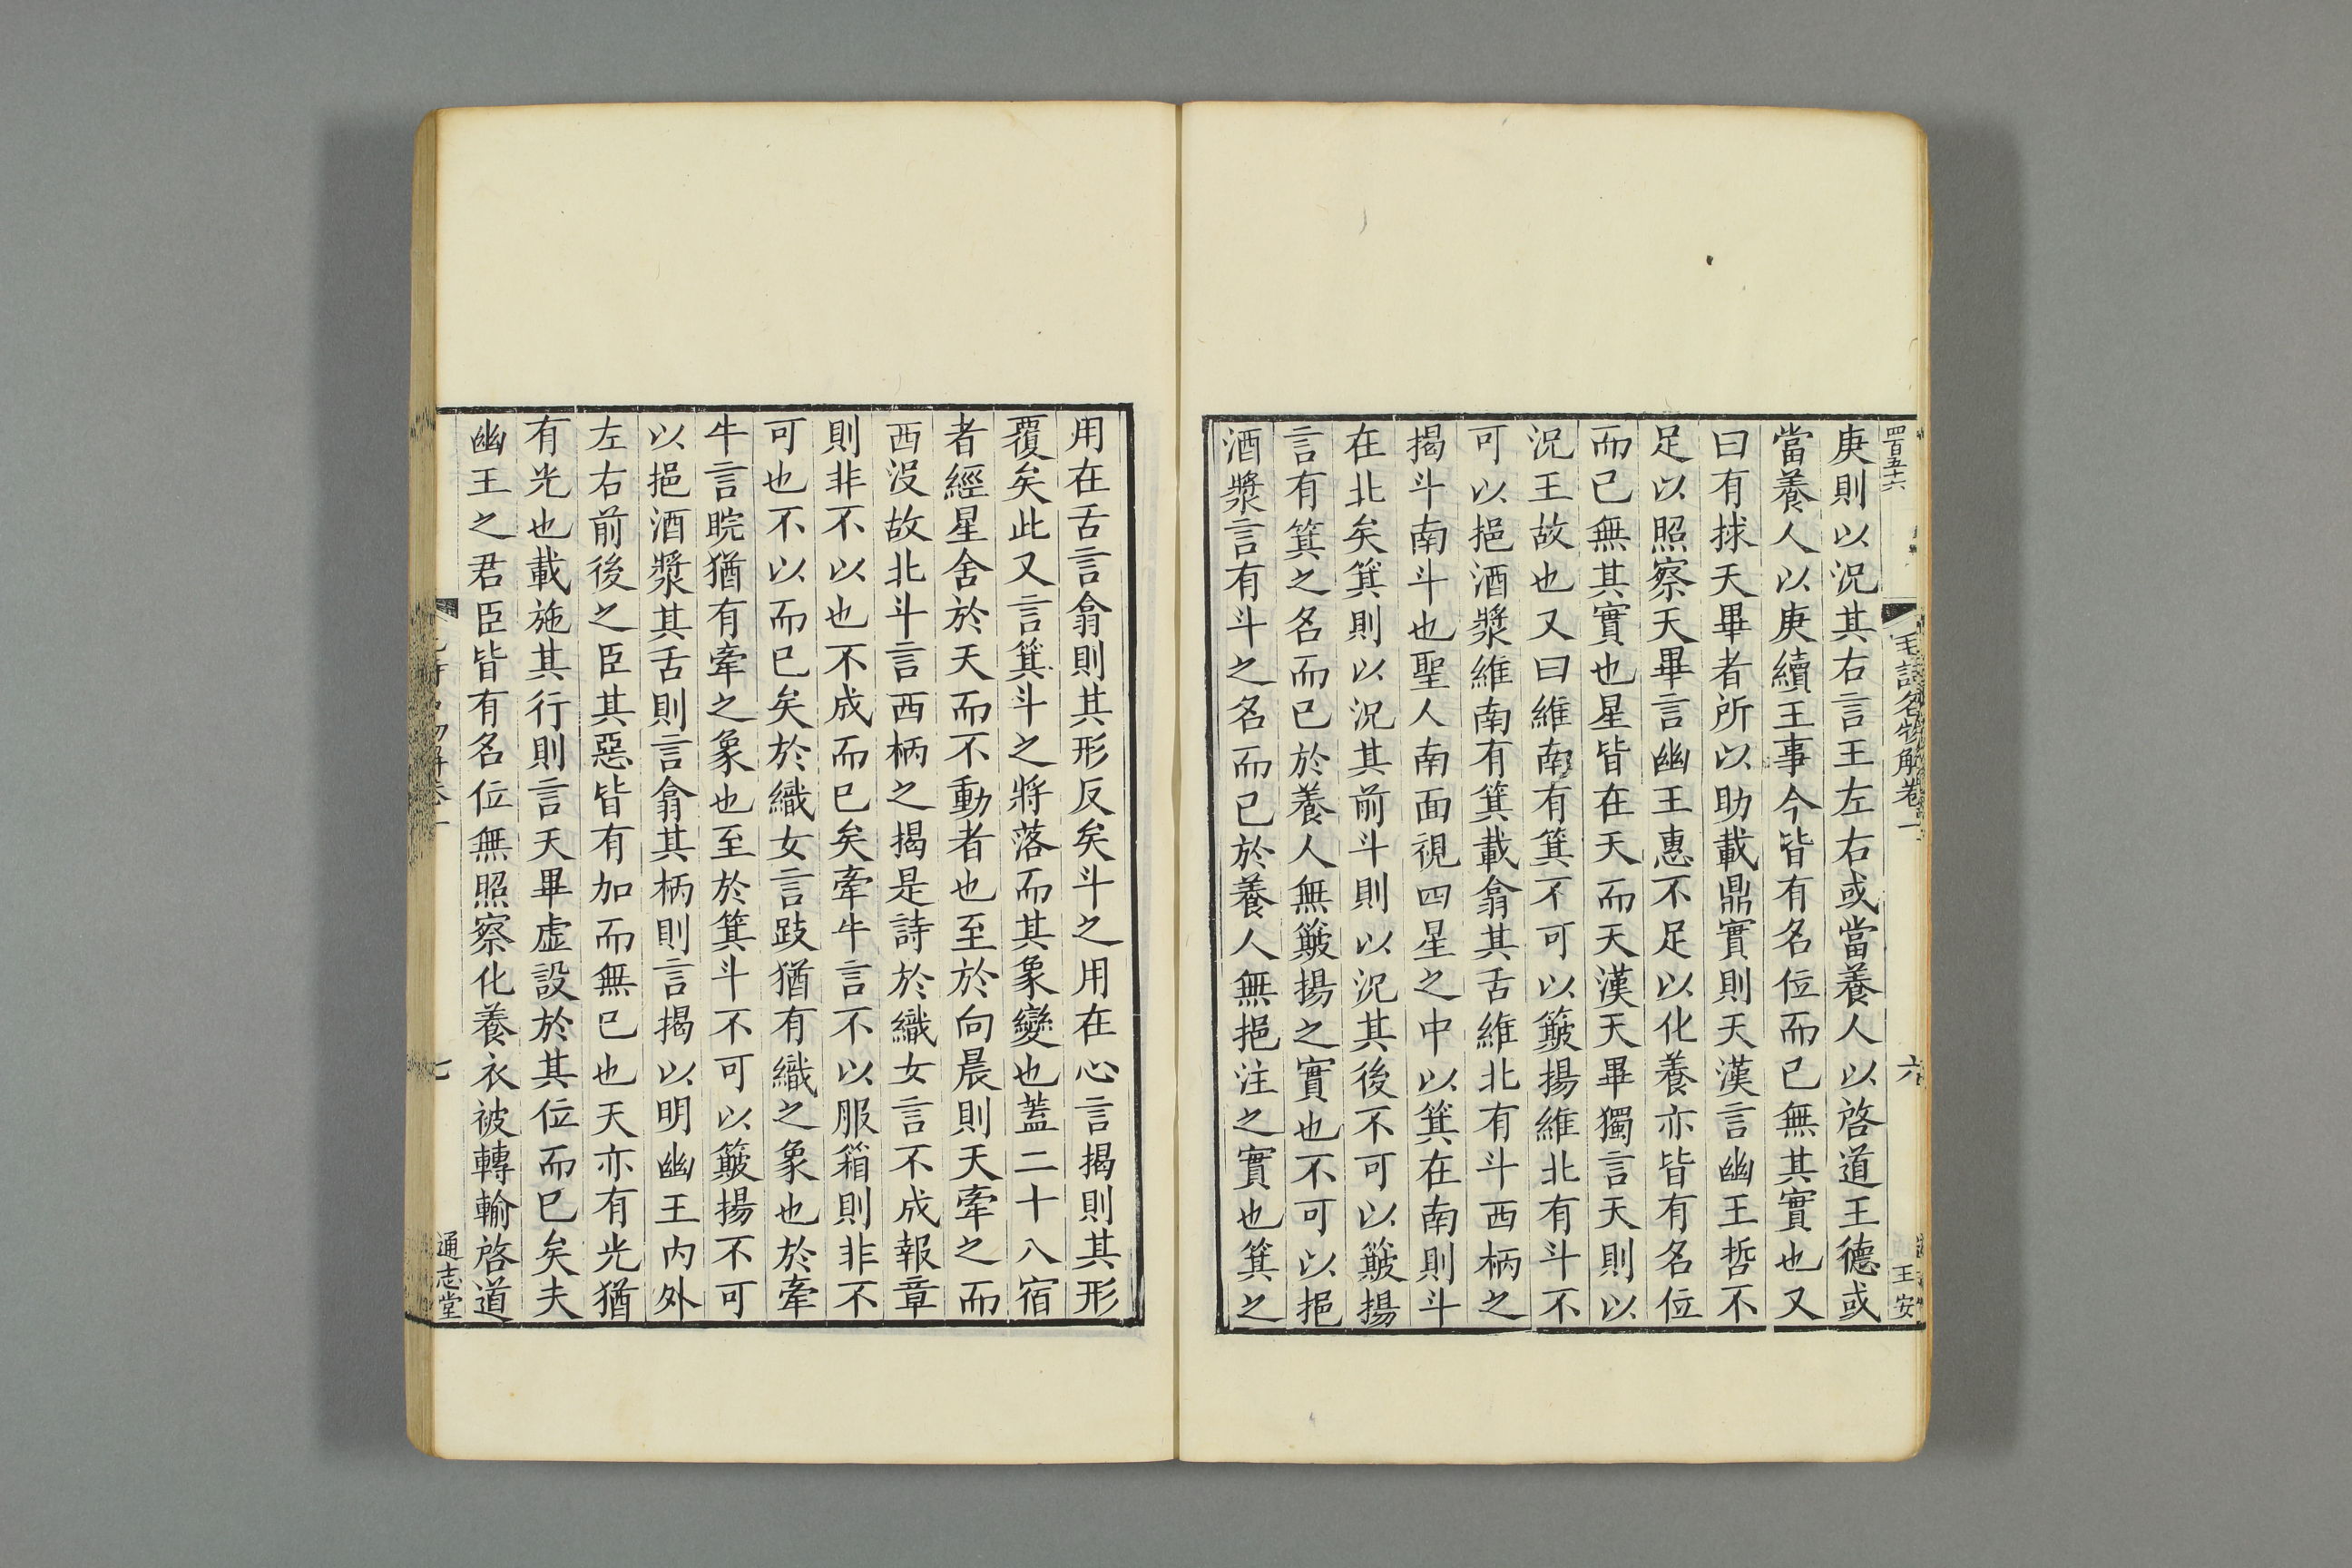 四百五十六
毛詩名物解卷一
六
王安
庚則以況其右言王左右或當養人以啓道王德或
當養人以庚續王事今皆有名位而已無其實也又
曰有捄天畢者所以助載鼎實則天漢言幽王哲不
足以照察天畢言幽王惠不足以化養亦皆有名位
而已無其實也星皆在天而天漢天畢獨言天則以
況王故也又曰維南有箕不可以簸揚維北有斗不
可以挹酒漿維南有箕載翕其舌維北有斗西柄之
揭斗南斗也聖人南面視四星之中以箕在南則斗
在北矣箕則以況其前斗則以況其後不可以簸揚
言有箕之名而已於養人無簸揚之實也不可以挹
酒漿言有斗之名而已於養人無挹注之實也箕之
用在舌言翕則其形反矣斗之用在心言揭則其形
覆矣此又言箕斗之將落而其象變也蓋二十八宿
者經星舍於天而不動者也至於向晨則天牽之而
西沒故北斗言西柄之揭是詩於織女言不成報章
則非不以也不成而已矣牽牛言不以服箱則非不
可也不以而已矣於織女言跂猶有織之象也於牽
牛言睆猶有牽之象也至於箕斗不可以簸揚不可
以挹酒漿其舌則言翕其柄則言揭以明幽王內外
左右前後之臣其惡皆有加而無已也天亦有光猶
有光也載施其行則言天畢虛設於其位而已矣夫
幽王之君臣皆有名位無照察化養衣被轉輸啓道
七
通志堂